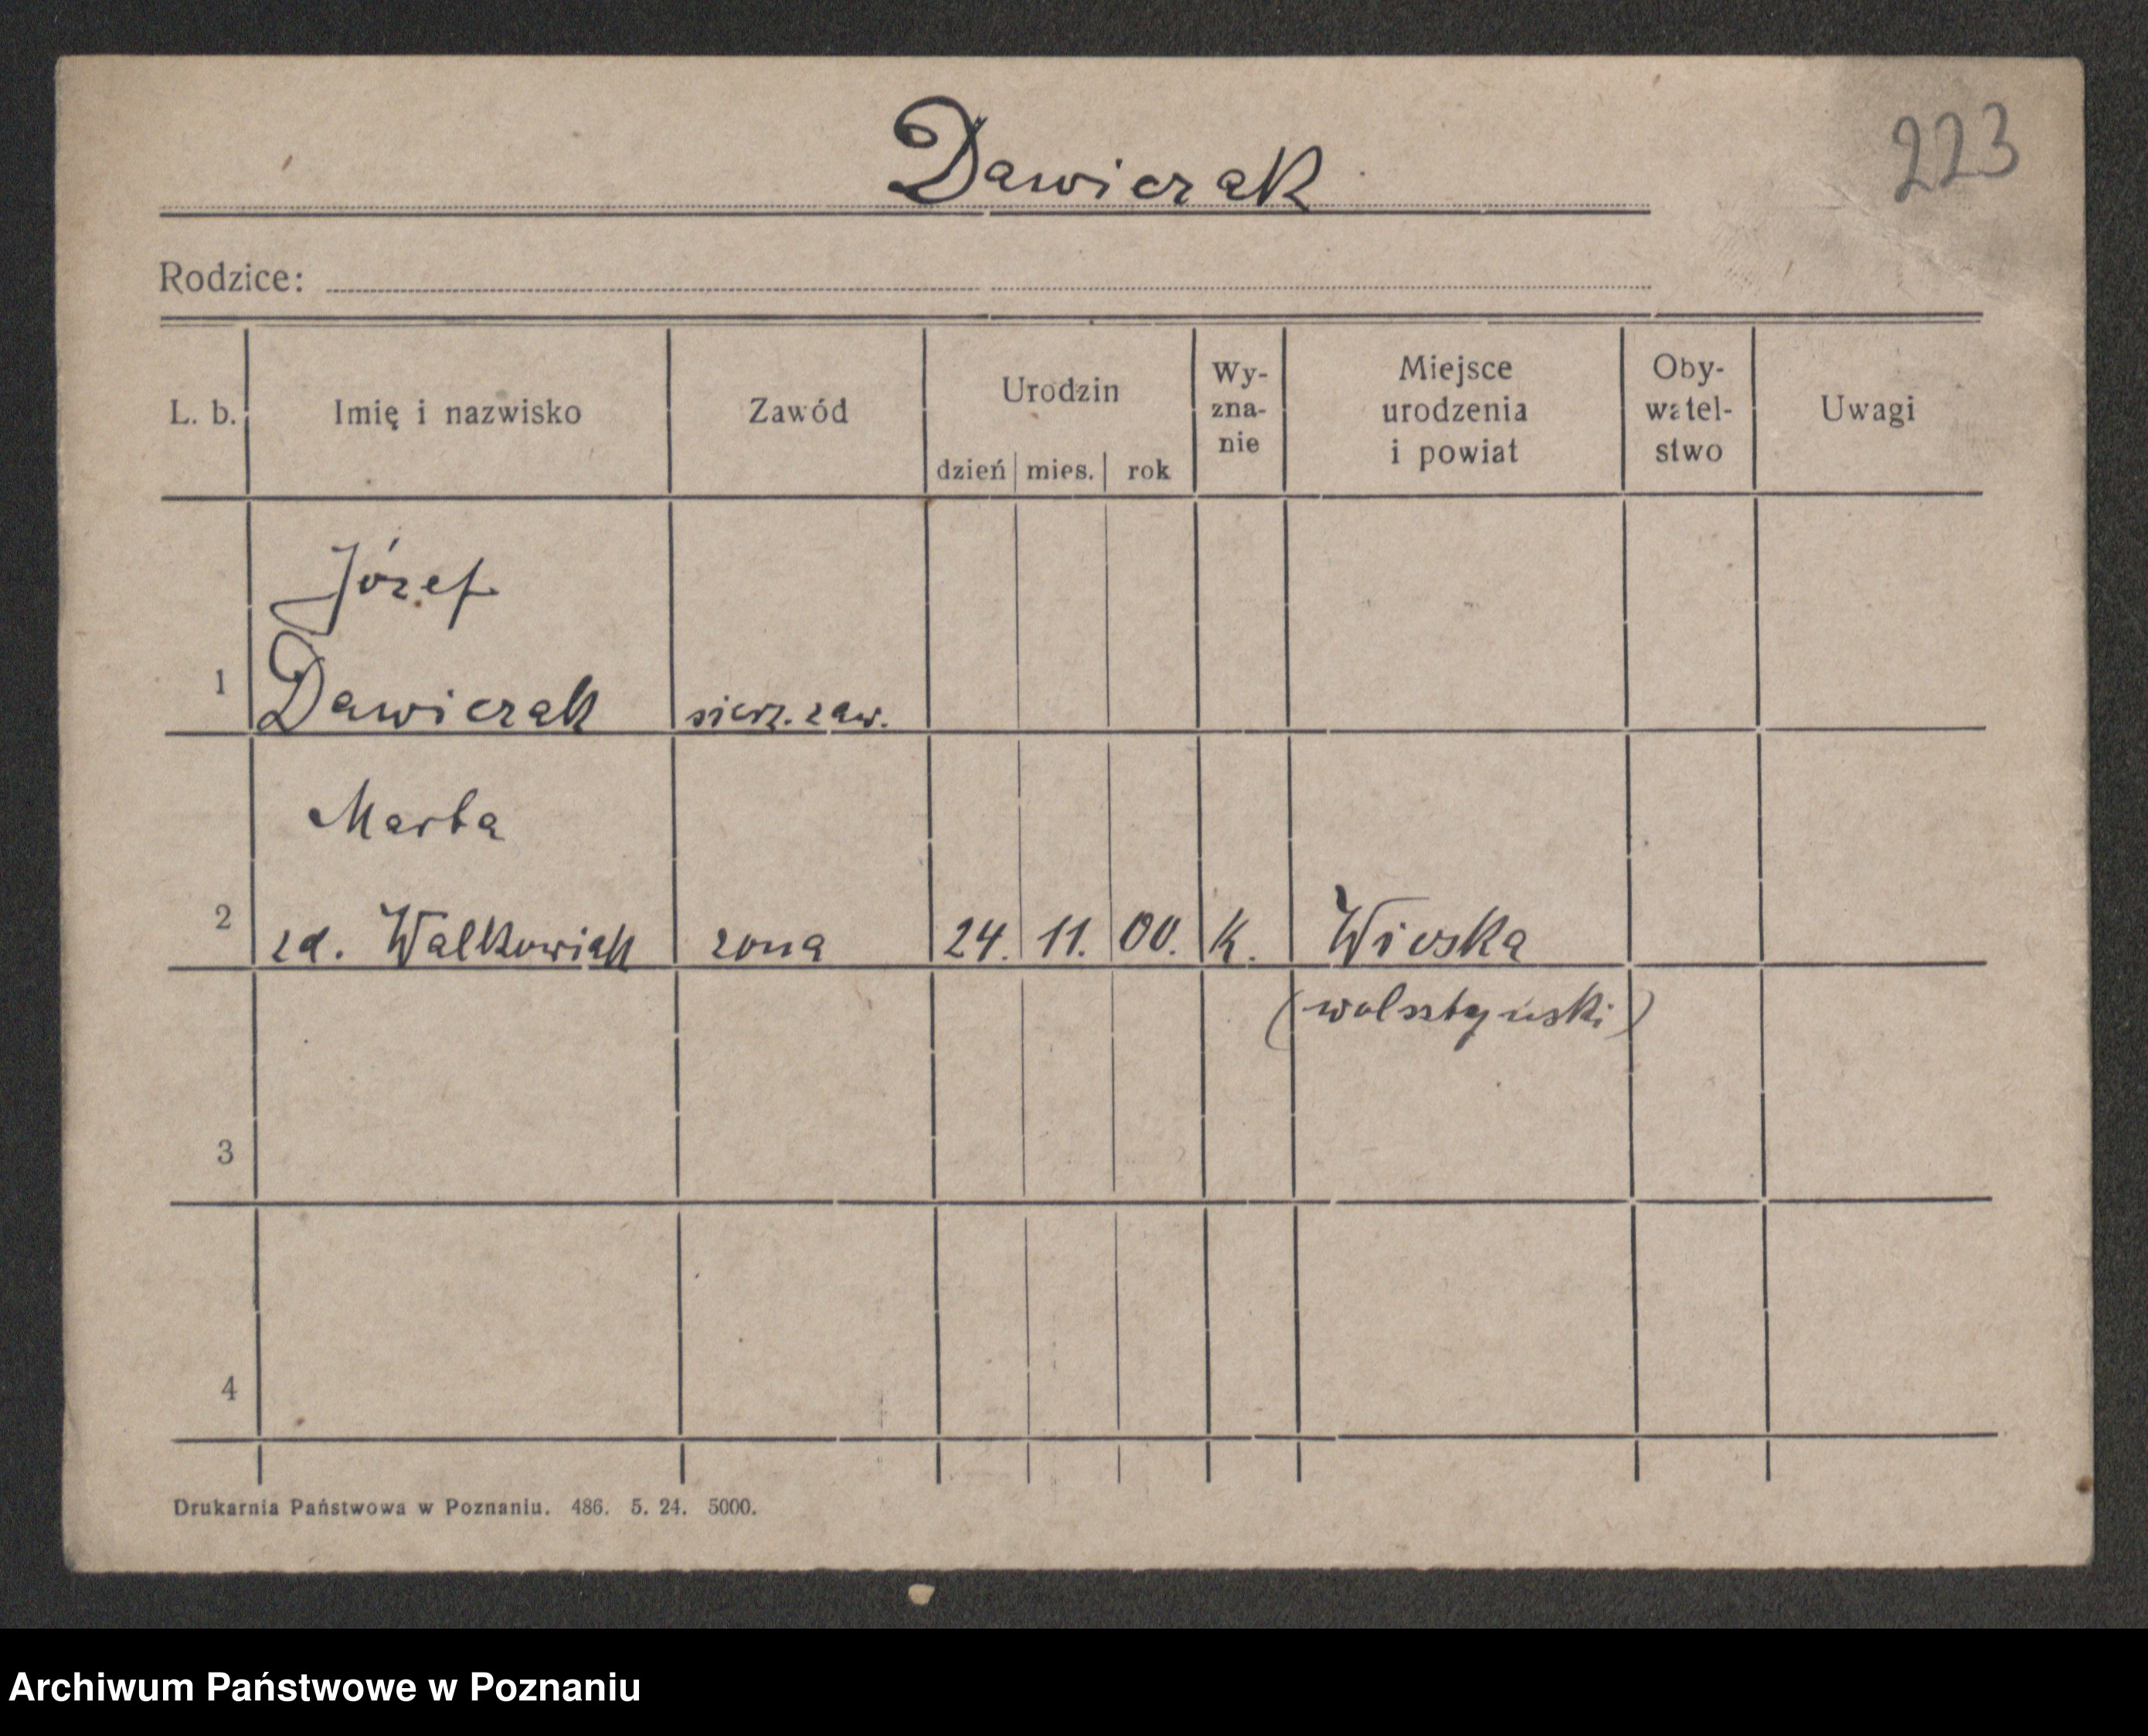 Dawiczak
223
Rodzice:
L. b.
Imię i nazwisko
Zawód
Urodzin
dzień mies. rok
Wy-
zna-
nie
Miejsce
urodzenia
i powiat
Oby-
watel-
stwo
Uwagi
Józef
1 Dawiczak sierż. zaw.
Marta
2 zd. Walkowiak zona 24. 11. 00. k. Wioska
(wolsztyński)
3
4
Drukarnia Państwowa w Poznaniu. 486. 5. 24. 5000.
Archiwum Państwowe w Poznaniu